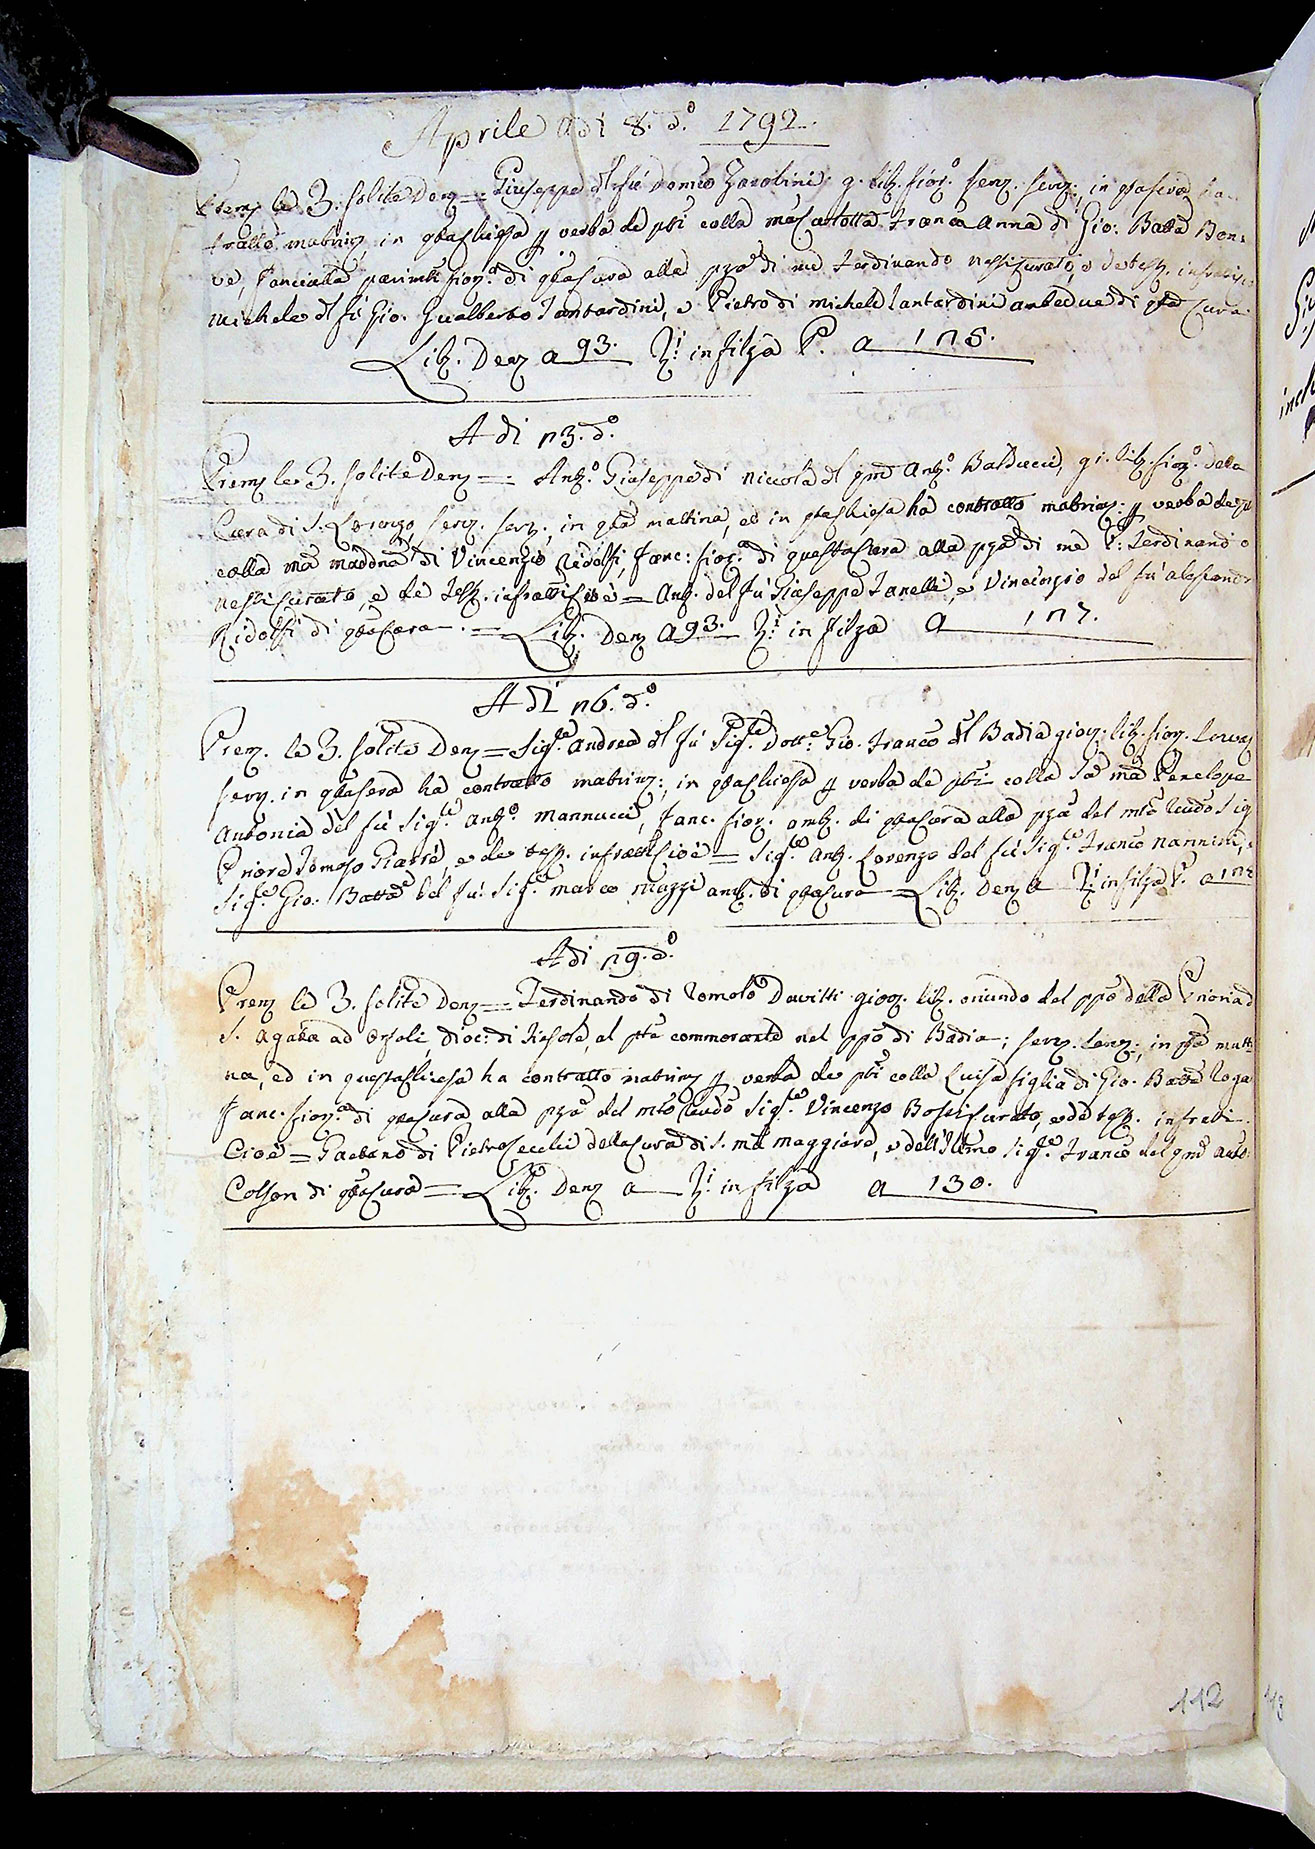 Aprile adi 8. d.º 1792.
Prem. le 3. solite Den. = Giuseppe del fú Domco Zarolini, g. lib. fior.º serv. serv., in qta sera ha
tratto matrim. in qta chiesa p verba de pti colla Ma Carlotta Franca Anna di Gio: Batta Ben:
ve, Fanciulla parimte fior.ª di qta Cura alla pza di me Ferdinando Nessi Curato, e de tesj. infrascri
Michele dl fú Gio. Gualberto Lantardini, e Pietro di Michele Lantardini ambedue di qta Cura.
Lib. Den a 93. Zi in filza P. a 175.
A di 13. d.º
Prem. le 3. solite Den. = Ant.º Giuseppe di Niccola dl qm Ant.º Balducci, gi. lib. fior.º della
Cura di S. Lorenzo, serv. serv., in qta mattina, ed in qta chiesa ha contratto matrim: p verba de pti
colla Ma Maddna di Vincenzio Ridolfi, fanc: fior.ª di questa Cura alla pza di me P: Ferdinando
Nessi Curato, e de Tesj. infratti cioè = Ant. del fú Giuseppe Fanelli, e Vincenzio del fú Alessandr
Ridolfi di qta Cura. = Lib. Den a 93. Zi in filza a 177.
A dì 16. d.º
Prem. le 3. solite Den = Sig.re Andrea dl fú Sig.re Dott.e Gio. Franco del Badia giov. lib. fior. servaj
serv. in qta sera ha contratto matrim:, in qta chiesa p verba de pti colla Sa Ma Penelope
Antonia del fú Sig.re Ant.º Mannucci, fanc. fior. amb. di qta Cura alla pza del mto Revdo Sig
Priore Tomaso Giarrè, e de tesj. infratti cioè = Sig.re Ant. Lorenzo del fú Sig.re Franco Nannini, e
Sig.re Gio: Batta del fú Sig.re Marco Muzzi amb. di qta Cura = Lib. Den a Zi in filza P. a
A di 19. d.º
Prem le 3. solite Den = Ferdinando di Romolo Davitti giov. lib. oriundo del ppo della Prioria d
S. Agata ad Orsoli, Dioc: di Fiesole, al pte commorante nel ppo di Badia; serv. serv., in qta matt
na, ed in questa chiesa ha contratto matrim p verba de pti colla Luisa figlia di Gio. Batta Roga
fanc. fior.ª di qta Cura alla pza del mto Revdo Sig.re Vincenzo Boschi Curato, e da tesj. infratti.
Cioè = Gaetano di Pietro Cecchi della Cura di S. Ma Maggiore, e dell'Illmo Sig.re Franco del qm Auto
Colson di qta Cura = Lib. Den a Zi in filza a 130.
112